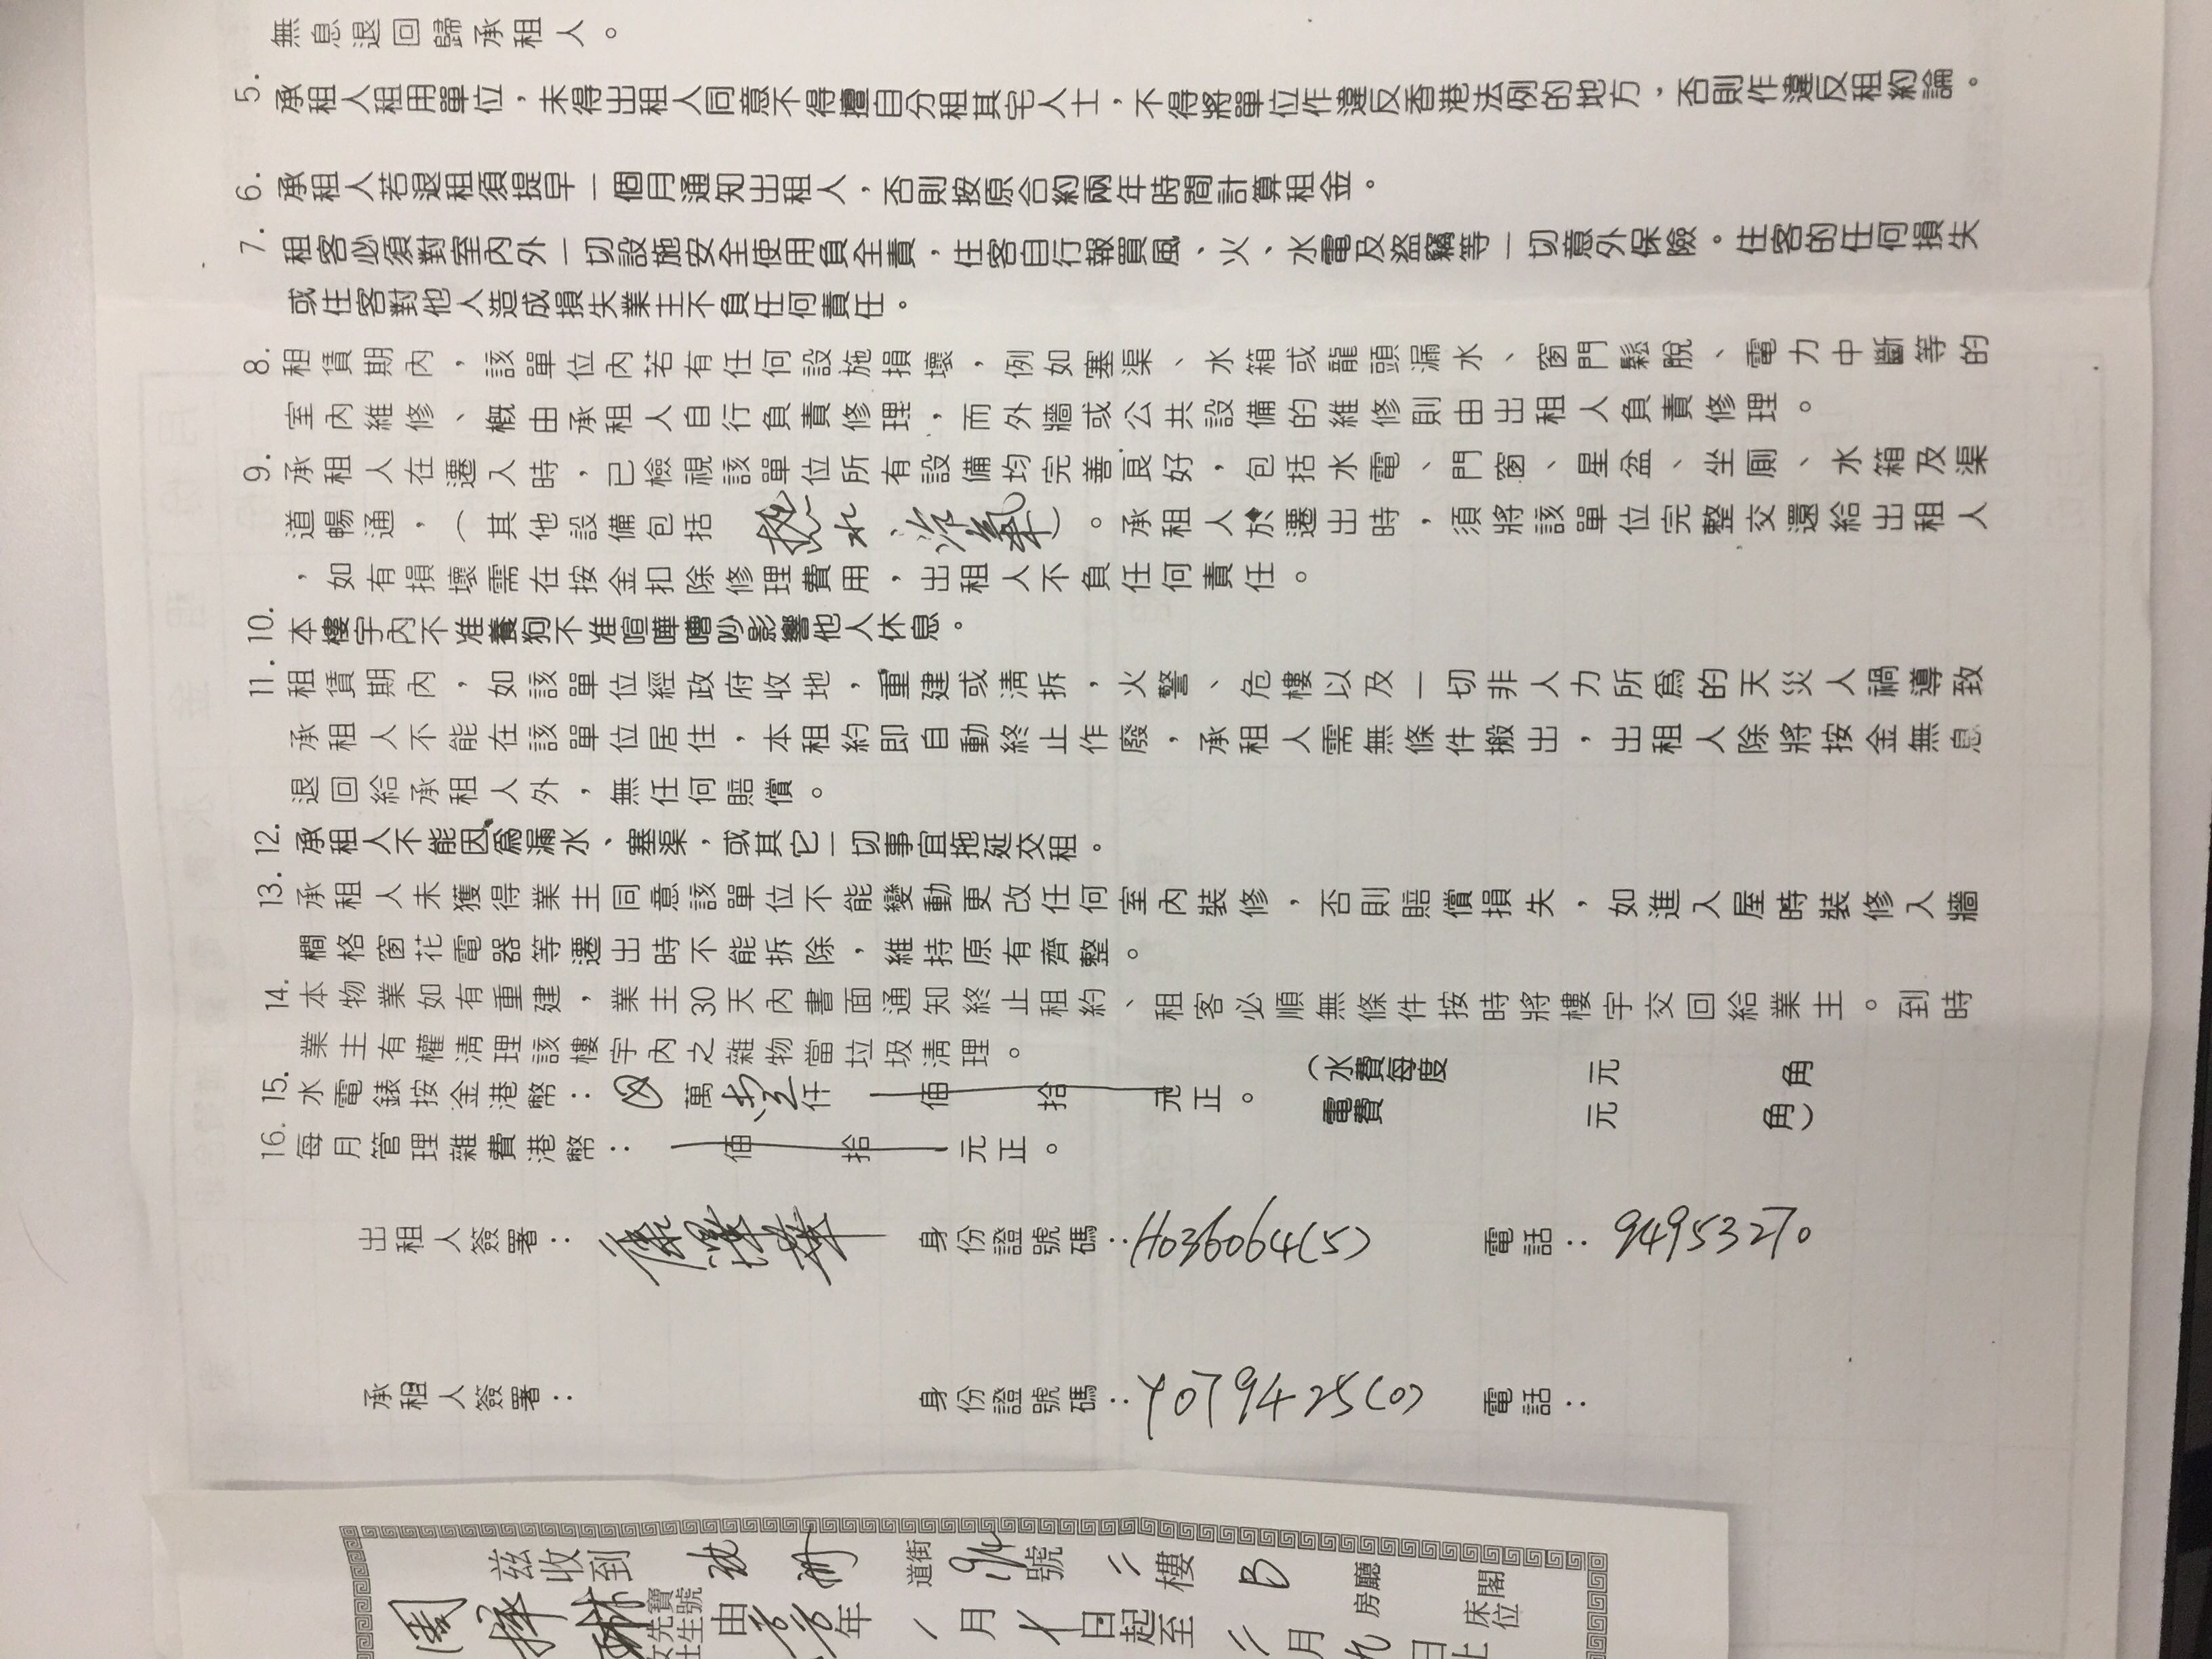 無息退回歸承租人。
5. 承租人租用單位，未得出租人同意不得擅自分租其它人士，不得將單位作違反香港法例的地方，否則作違反租約論。
6. 承租人若退租須提早一個月通知出租人，否則按原合約兩年時間計算租金。
7. 租客必須對室內外一切設施安全使用負全責，住客自行報買風、火、水電及盜竊等一切意外保險。住客的任何損失
或住客對他人造成損失業主不負任何責任。
8. 租賃期內，該單位內若有任何設施損壞，例如塞渠、水箱或龍頭漏水、窗門鬆脫、電力中斷等的
室內維修、概由承租人自行負責修理，而外牆或公共設備的維修則由出租人負責修理。
9. 承租人在遷入時，已檢視該單位所有設備均完善良好，包括水電、門窗、星盆、坐廁、水箱及渠
道暢通，（其他設備包括 熱水 冷氣）。承租人於遷出時，須將該單位完整交還給出租人
，如有損壞需在按金扣除修理費用，出租人不負任何責任。
10. 本樓宇內不准養狗不准喧嘩嘈吵影響他人休息。
11. 租賃期內，如該單位經政府收地，重建或清拆，火警、危樓以及一切非人力所為的天災人禍導致
承租人不能在該單位居住，本租約即自動終止作廢，承租人需無條件搬出，出租人除將按金無息
退回給承租人外，無任何賠償。
12. 承租人不能因為漏水、塞渠，或其它一切事宜拖延交租。
13. 承租人未獲得業主同意該單位不能變動更改任何室內裝修，否則賠償損失，如進入屋時裝修入牆
櫊格窗花電器等遷出時不能拆除，維持原有齊整。
14. 本物業如有重建，業主30天內書面通知終止租約、租客必順無條件按時將樓宇交回給業主。到時
業主有權清理該樓宇內之雜物當垃圾清理。
15. 水電錶按金港幣： 萬 仟 佰 拾 元正。 （水費每度 元 角
電費 元 角）
16. 每月管理雜費港幣： 佰 拾 元正。
出租人簽署： 身份證號碼：H036064(5) 電話：94953270
承租人簽署： 身份證號碼：Y079425(0) 電話：
茲收到 道街 號 二樓 B 房廳 床閣位
周 女先寶士生號 由 年 一月 日起至 二月 九日止